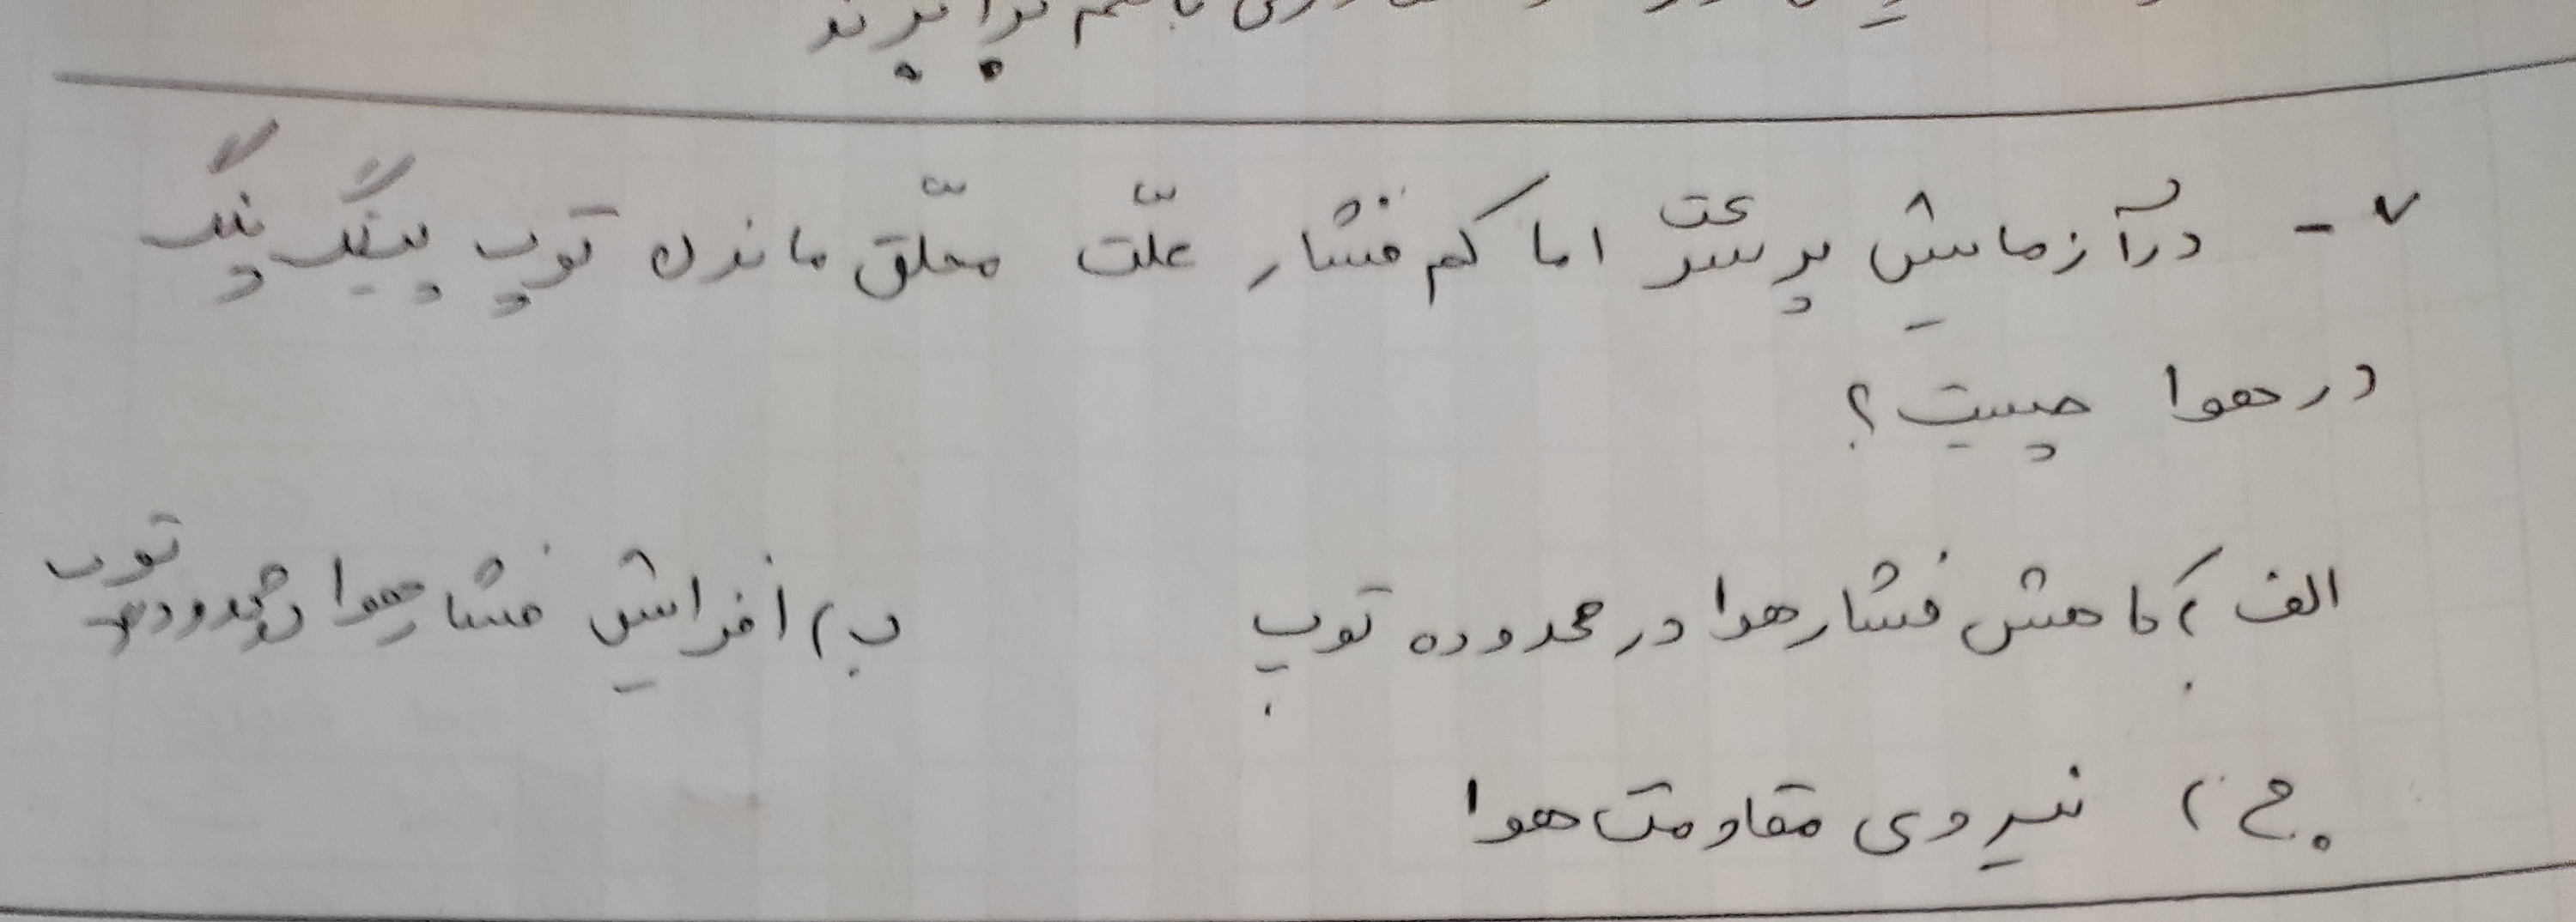 برابرند
۷- در آزمایش پرسرعت اما کم فشار علّت معلّق ماندن توپ پینگ پنگ
در هوا چیست؟
الف) کاهش فشار هوا در محدوده توپ ب) افزایش فشار هوا در محدوده توپ
ج) نیروی مقاومت هوا